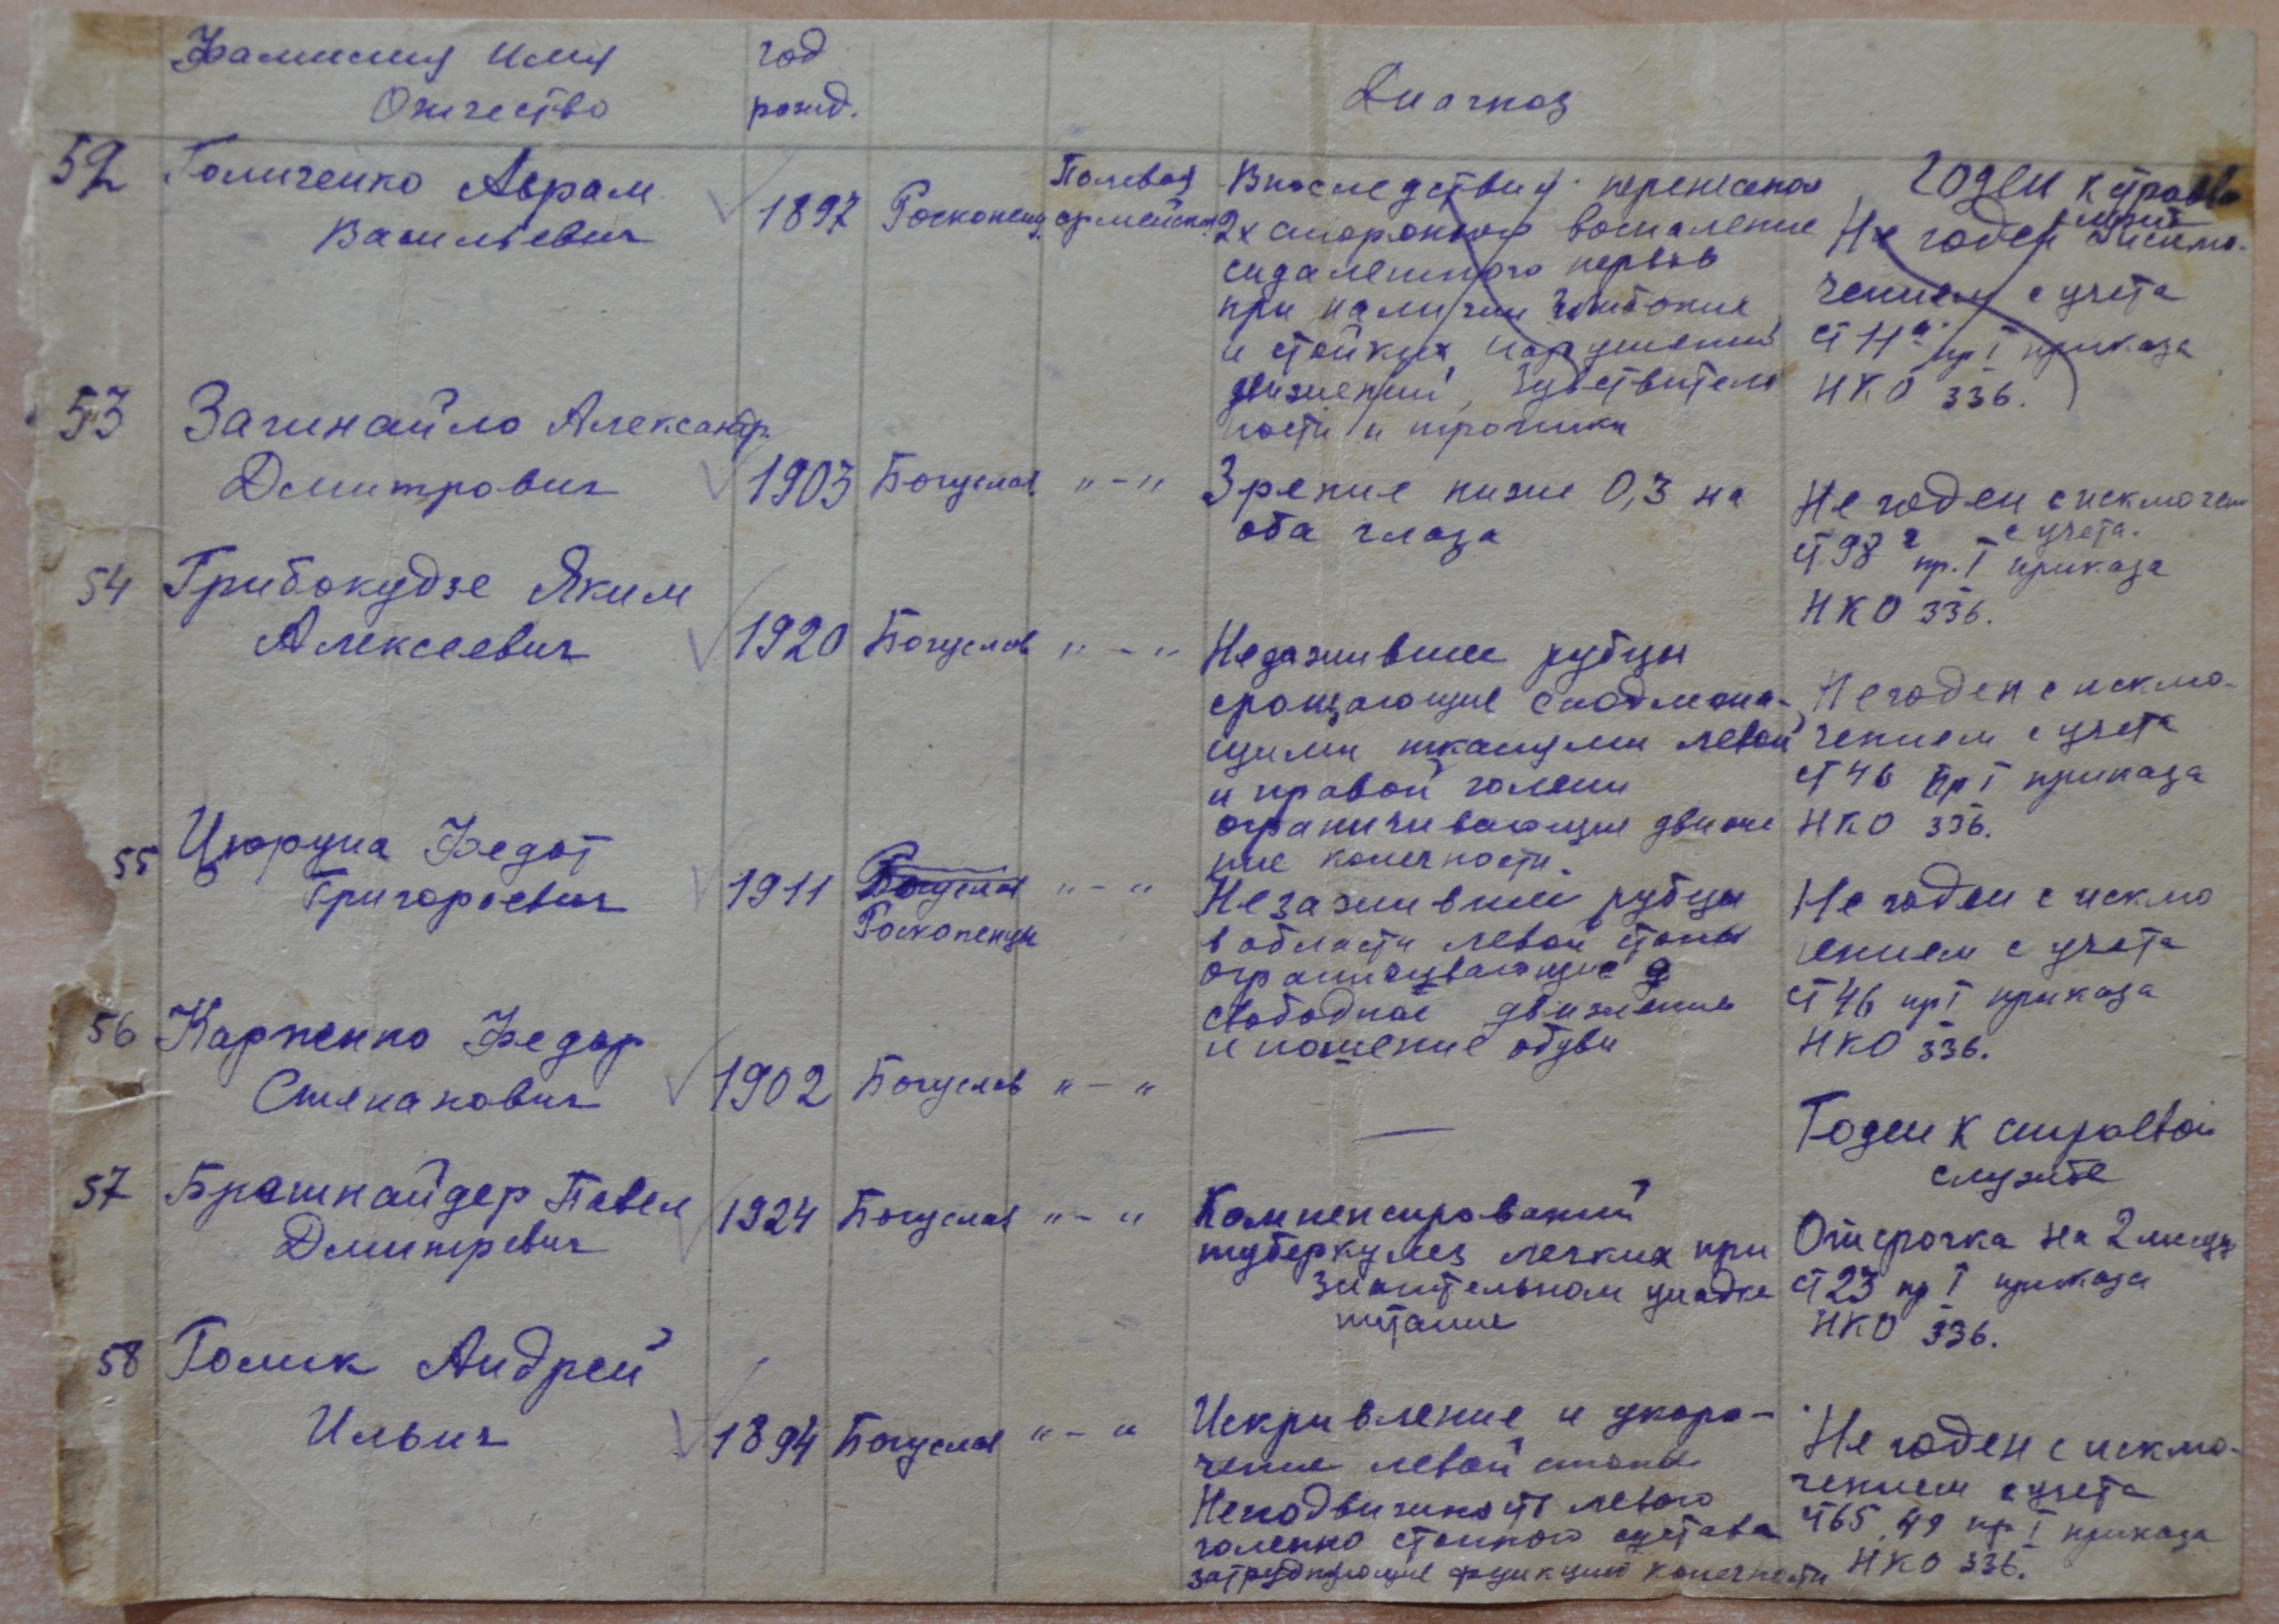 Фамилия Имя
Отчество
год
рожд.
Диагноз
52 Голиченко Аврам
Васильевич
1897 Росконец. Полевая
армейская
Впоследствия перенесеной
2х стороннего воспаление
седалешного нервов
при наличии глибоких
и стойких нарушений
движений, чувствитель
ности и трофики
Годен к строево
служб
Не годен с исклю-
чением с учета
ст 11а пр I приказа
НКО 336.
53 Загинайло Александр.
Дмитрович
1903 Богуслав " - "
Зрение ниже 0,3 на
оба глаза
Не годен с исключен
с учета.
ст 98 г пр. I приказа
НКО 336.
54 Грибокудзе Яким
Алексеевич
1920 Богуслов " - "
Недажившие рубцы
сращающие с подлежа-
щими тканями левой
и правой голени
ограничивающие движе
ние конечности.
Не годен с исклю-
чением с учета
ст 46 пр I приказа
НКО 336.
55 Цюрупа Федот
Григорьевич
1911 Богуслав " - "
Росконенцы
Незажившие рубцы
в области левой стопы
ограничивающие д
свободное движение
и ношение обуви
Не годен с исклю
чением с учета
ст 46 пр I приказа
НКО 336.
56 Карпенко Федор
Степанович
1902 Богуслав " - "
—
Годен к строевой
службе
57 Брешнайдер Павел
Дмитревич
1924 Богуслав " - "
Компенсированый
туберкулез легких при
значительном упадке
питание
Отсрочка на 2 месяц
ст 23 пр I приказа
НКО 336.
58 Голик Андрей
Ильич
1894 Богуслав " - "
Искривление и укоро-
чение левой стопы
Неподвижность левого
голенно стопного сустава
затрудняющие функции конечности
Не годен с исклю-
чением с учета
ст 65, 49 пр I приказа
НКО 336.